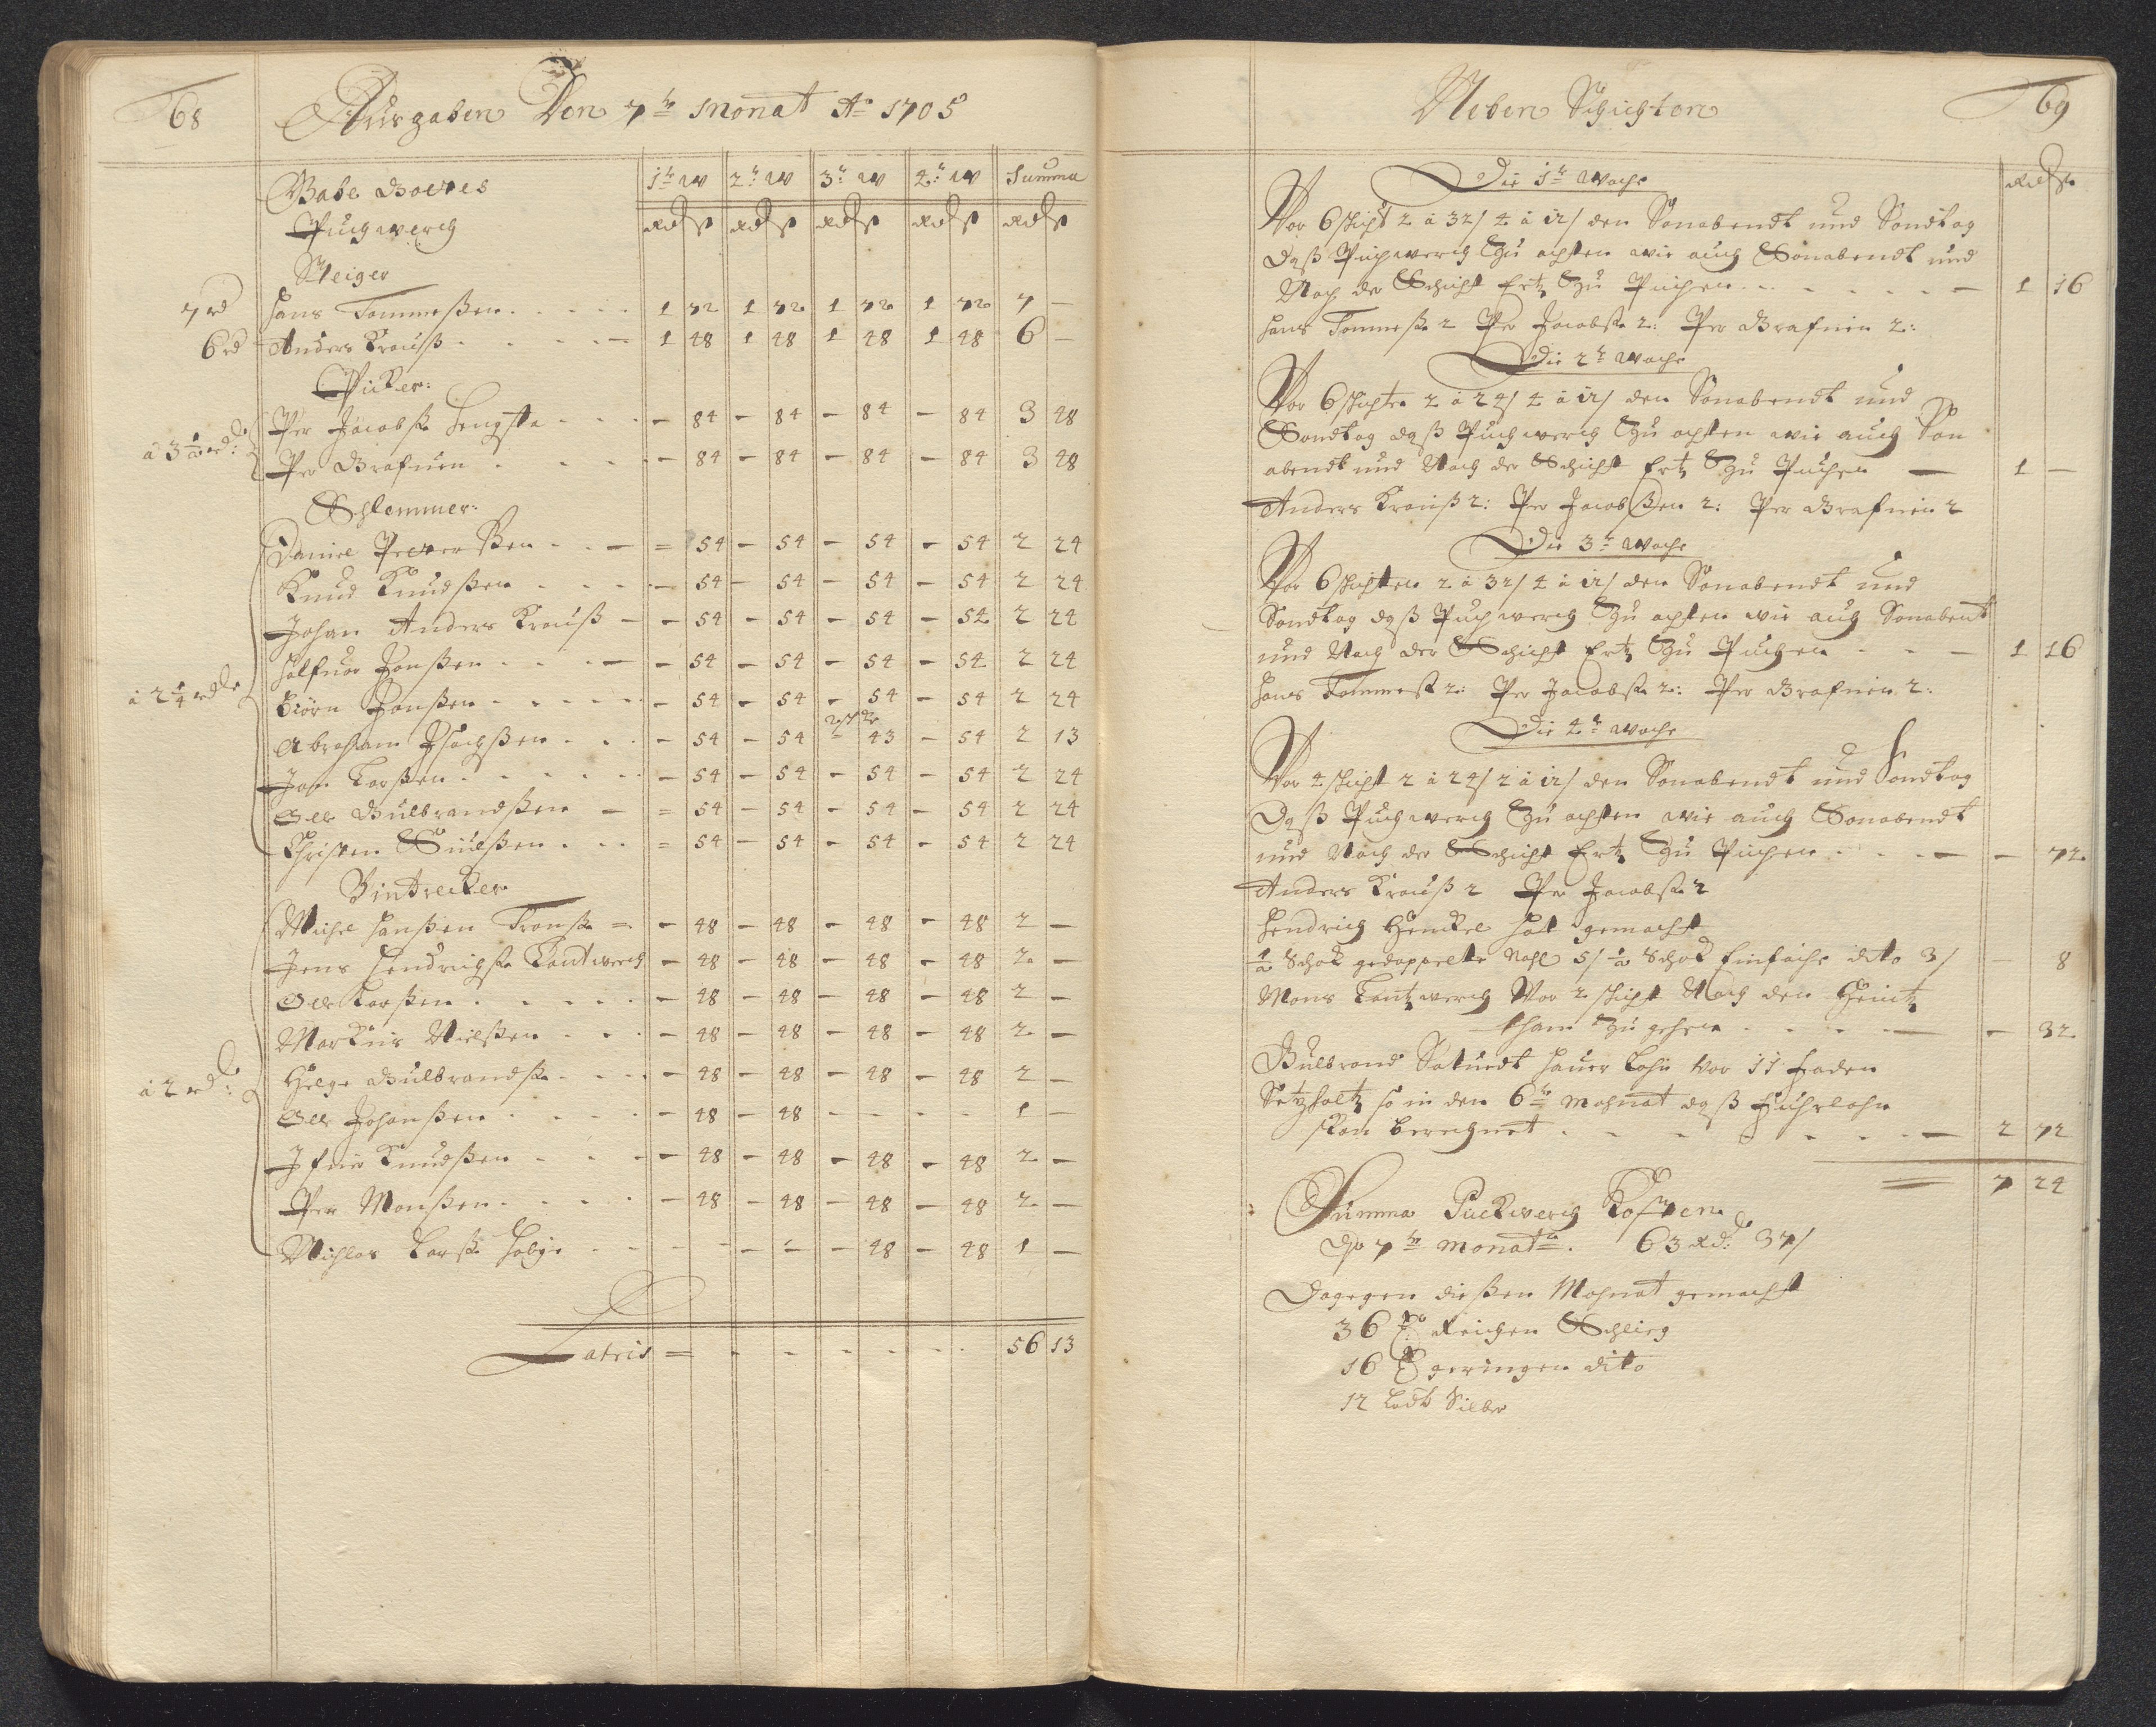 68
Ausgaben Den 7te Monat Ao 1705
Gabe Gottes
Puchwerch
1te W 2te W 3te W 4te W Summa
Rd ß Rd ß Rd ß Rd ß Rd ß
Steiger
7 rd Hans Tommeßen 1 72 1 72 1 72 1 72 7 —
6 rd Anders Krauß 1 48 1 48 1 48 1 48 6 —
Pucker:
à 3 1/2 rd: Per Jacobß. Lengste — 84 — 84 — 84 — 84 3 48
Per Grafuen — 84 — 84 — 84 — 84 3 48
Schlemmer:
Daniel Pederßen = 54 — 54 — 54 — 54 2 24
Knud Knudßen — 54 — 54 — 54 — 54 2 24
Johan Anders Krauß — 54 — 54 — 54 — 54 2 24
à 2 1/4 rd Halfuor Janßen — 54 — 54 — 54 — 54 2 24
Biörn Janßen — 54 — 54 — 54 — 54 2 24
Abraham Isachßen — 54 — 54 — 43 — 54 2 13
Jan Larßen — 54 — 54 — 54 — 54 2 24
Ole Gulbrandßen = 54 — 54 — 54 — 54 2 24
Christen = 54 — 54 — 54 — 54 2 24
Michel Hanßen Tronß. — 48 — 48 — 48 — 48 2 —
Jens Hendrichß. Lantwerch — 48 — 48 — 48 — 48 2 —
Ole Larßen — 48 — 48 — 48 — 48 2 —
Markus Nielßen — 48 — 48 — 48 — 48 2 —
à 2 rd: Helge Gulbrandß. — 48 — 48 — 48 — 48 2 —
Ole Johanßen — 48 — 48 — — — — 1 —
Knudßen — 48 — 48 — 48 — 48 2 —
Per Monßen — 48 — 48 — 48 — 48 2 —
Nichlas Larß. — — — — — 48 — 48 1 —
Latris = 56 13
Neben Schichten
69
Rd ß
Die 1te Woche
Vor 6 schicht 2 à 32/ 4 à 12/ den Sonabendt und Sondtag
daß Puchwerch Zu achten wie auch Sonabendt und
Nach der Schicht Ertz Zu Puchen — 1 16
Hans Tommeß. 2 Per Jacobß. 2: Per Grafuen 2:
Die 2te Woche
Vor 6 schichten 2 à 24/ 4 à 12/ den Sonabendt und
Sondtag daß Puchwerch Zu achten wie auch Son
abendt und Nach der Schicht Ertz Zu Puchen — 1 —
Anders Krauß 2: Per Jacobßen 2: Per Grafuen 2
Die 3te Woche
Vor 6 schichten 2 à 32/ 4 à 12/ den Sonabendt und
Sondtag daß Puchwerch Zu achten wie auch Sonabendt
und Nach der Schicht Ertz Zu Puchen — 1 16
Hans Tommeß. 2: Per Jacobß. 2: Per Grafuen 2:
Die 4te Woche
Vor 4 schicht 2 à 24/ 2 à 12/ den Sonabendt und Sondtag
Daß Puchwerch Zu achten wie auch Sonabendt
und Nach der Schicht Ertz Zu Puchen — — 72
Anders Krauß 2 Per Jacobß. 2
Hendrich Henckel hat gemacht
1/2 Schok gedoppelte Nahl 5/ 1/2 Schok Einfache dito 3/ — 8
Mons Lantzwerch Vor 2 schicht Nach den
Zu gehen — — 32
Gulbrand Hauer Lohn vor 11 faden
Setzholtz so in den 6te Mohnat daß Fuhrlohn
schon berechnet — 2 72
7 24
Summa Puckwerch Kosten
des 7te Monats. 63 Rd: 37/
Dagegen dießen Mohnat gemacht
36 Reichen Schlieg
16 geringen dito
12 Lodt Silber